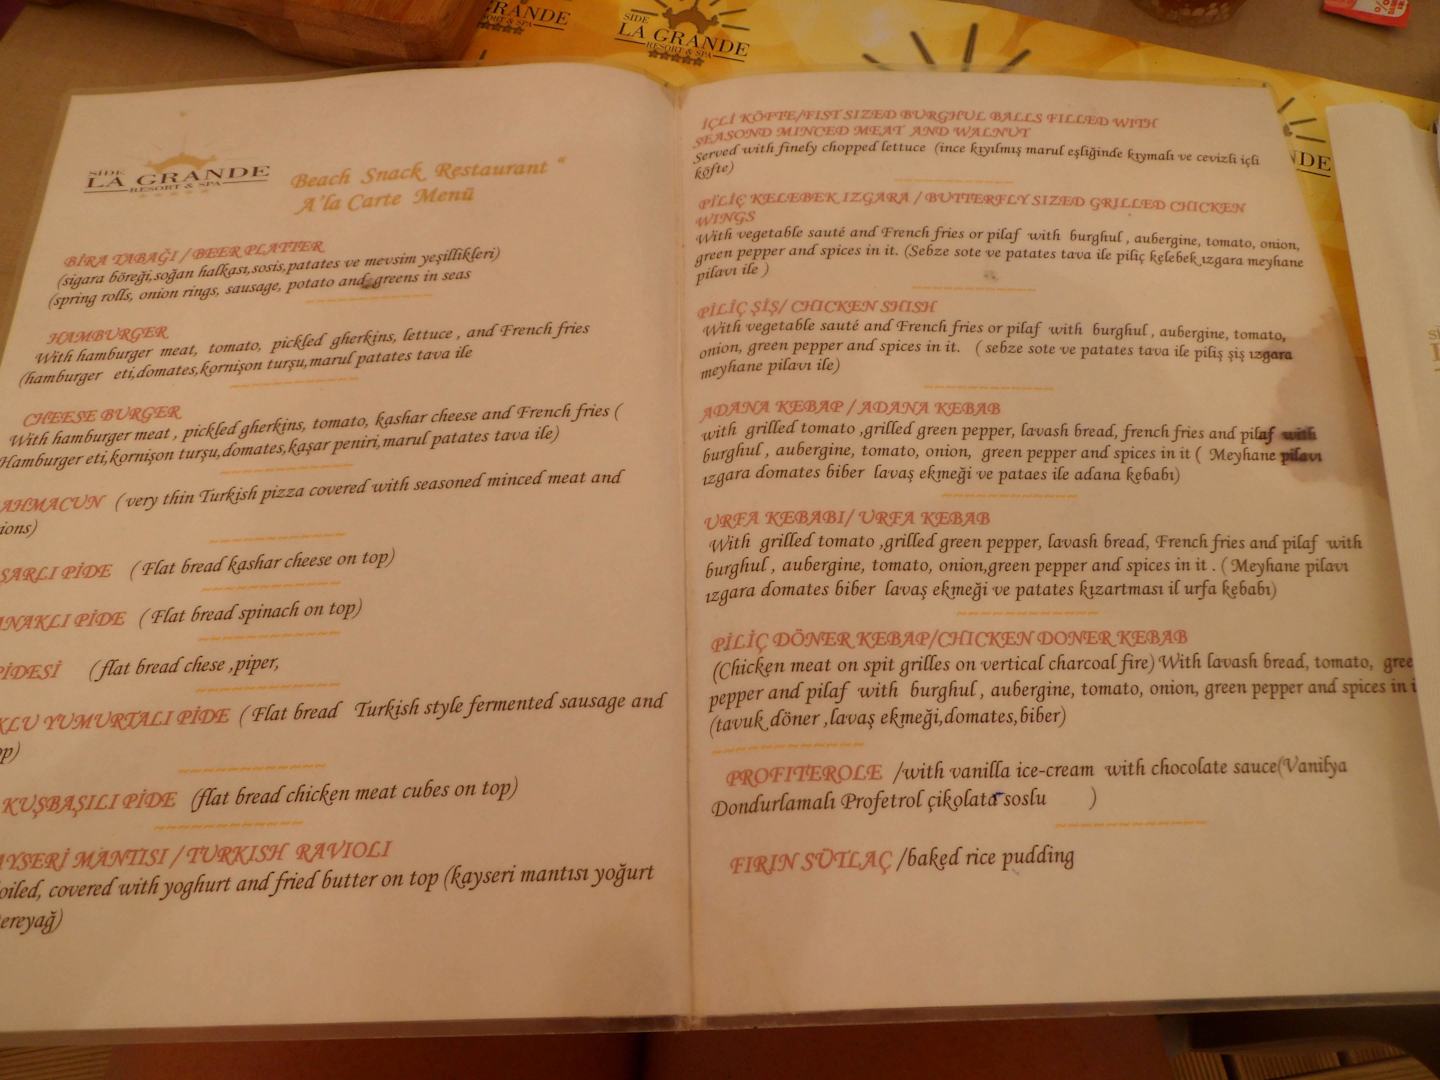 RANDE
RT & SPA
SIDE
LA GRANDE
RESORT & SPA
NDE
SIDE
LA GRANDE
RESORT & SPA
Beach Snack Restaurant "
A'la Carte Menü
BİRA TABAĞI / BEER PLATTER
(sigara böreği,soğan halkası,sosis,patates ve mevsim yeşillikleri)
(spring rolls, onion rings, sausage, potato and greens in seas
HAMBURGER
With hamburger meat, tomato, pickled gherkins, lettuce , and French fries
(hamburger eti,domates,kornişon turşu,marul patates tava ile
CHEESE BURGER
With hamburger meat , pickled gherkins, tomato, kashar cheese and French fries (
Hamburger eti,kornişon turşu,domates,kaşar peniri,marul patates tava ile)
AHMACUN ( very thin Turkish pizza covered with seasoned minced meat and
ions)
ŞARLI PİDE ( Flat bread kashar cheese on top)
ANAKLI PİDE ( Flat bread spinach on top)
PİDESİ (flat bread chese ,piper,
KLU YUMURTALI PİDE ( Flat bread Turkish style fermented sausage and
op)
KUŞBAŞILI PİDE (flat bread chicken meat cubes on top)
AYSERİ MANTISI / TURKISH RAVIOLI
oiled, covered with yoghurt and fried butter on top (kayseri mantısı yoğurt
ereyağ)
İÇLİ KÖFTE/FIST SIZED BURGHUL BALLS FILLED WITH
SEASOND MINCED MEAT AND WALNUT
Served with finely chopped lettuce (ince kıyılmış marul eşliğinde kıymalı ve cevizli içli
köfte)
PİLİÇ KELEBEK IZGARA / BUTTERFLY SIZED GRILLED CHICKEN
WINGS
With vegetable sauté and French fries or pilaf with burghul , aubergine, tomato, onion,
green pepper and spices in it. (Sebze sote ve patates tava ile piliç kelebek ızgara meyhane
pilavı ile )
PİLİÇ ŞİŞ/ CHICKEN SHISH
With vegetable sauté and French fries or pilaf with burghul , aubergine, tomato,
onion, green pepper and spices in it. ( sebze sote ve patates tava ile piliş şiş ızgara
meyhane pilavı ile)
ADANA KEBAP / ADANA KEBAB
with grilled tomato ,grilled green pepper, lavash bread, french fries and pilaf with
burghul , aubergine, tomato, onion, green pepper and spices in it ( Meyhane pilavı
ızgara domates biber lavaş ekmeği ve pataes ile adana kebabı)
URFA KEBABI/ URFA KEBAB
With grilled tomato ,grilled green pepper, lavash bread, French fries and pilaf with
burghul , aubergine, tomato, onion,green pepper and spices in it . ( Meyhane pilavı
ızgara domates biber lavaş ekmeği ve patates kızartması il urfa kebabı)
PİLİÇ DÖNER KEBAP/CHICKEN DONER KEBAB
(Chicken meat on spit grilles on vertical charcoal fire) With lavash bread, tomato, gree
pepper and pilaf with burghul , aubergine, tomato, onion, green pepper and spices in i
(tavuk döner ,lavaş ekmeği,domates,biber)
PROFITEROLE /with vanilla ice-cream with chocolate sauce(Vanilya
Dondurlamalı Profetrol çikolata soslu )
FIRIN SÜTLAÇ /baked rice pudding